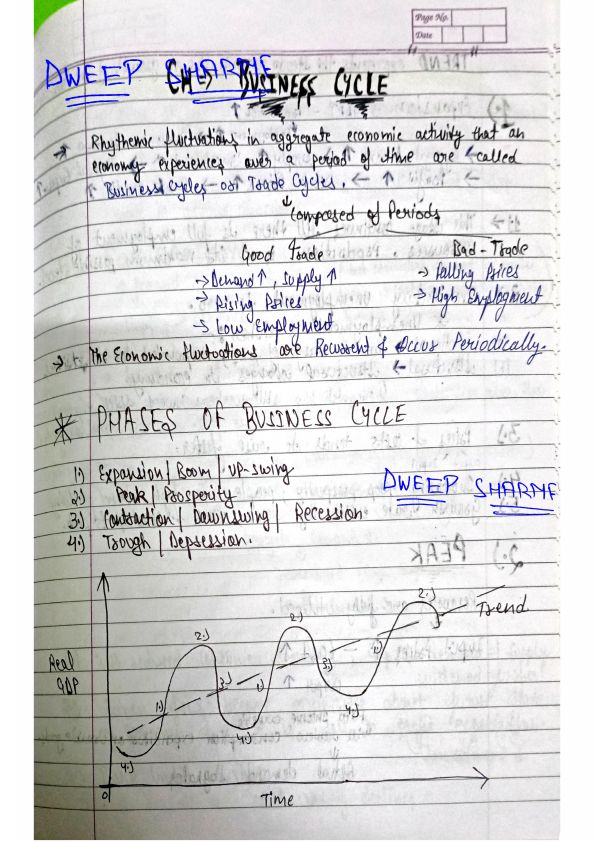 Page No.
Date
DWEEP SHARMA
CH → BUSINESS CYCLE
→ Rhythemic fluctuations in aggregate economic activity that an
economy experiences over a period of time are called
Business Cycles or Trade Cycles.
↓
Composed of Periods
Good Trade
Bad-Trade
→ Demand↑, Supply↑
→ Falling Prices
→ Rising Prices
→ High Employment
→ Low Employment
→ The Economic fluctuations are Recurrent & Occur Periodically.
* PHASES OF BUSINESS CYCLE
1.) Expansion / Boom / UP-swing
DWEEP SHARMA
2.) Peak / Prosperity
3.) Contraction / Downswing / Recession
4.) Trough / Depression.
Real GDP
1.) 2.) 3.) 4.) 1.) 2.) 3.) 4.) 1.) 2.)
4.)
Trend
0
Time